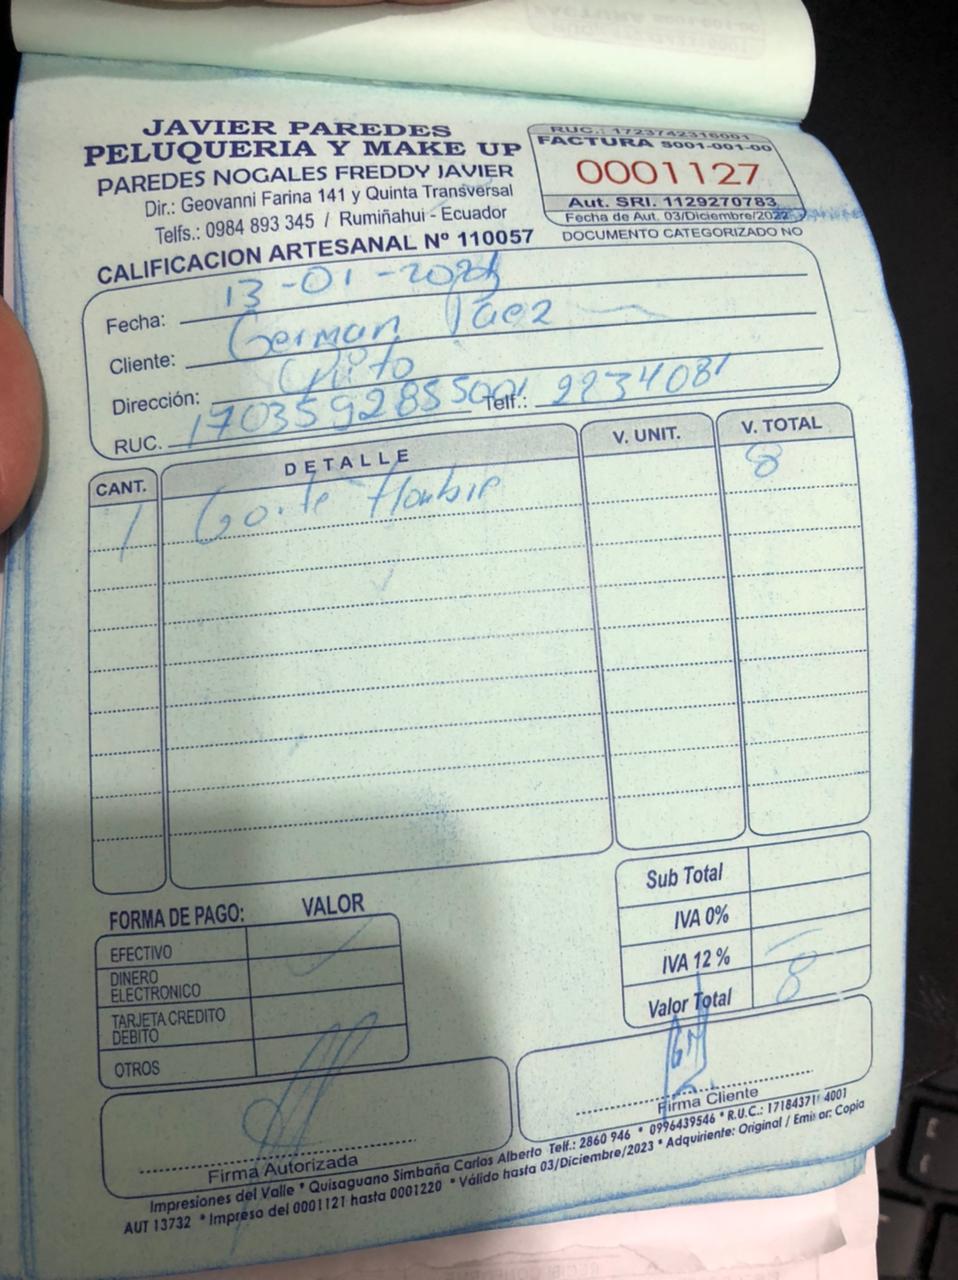 JAVIER PAREDES
PELUQUERIA Y MAKE UP
PAREDES NOGALES FREDDY JAVIER
Dir.: Geovanni Farina 141 y Quinta Transversal
Telfs.: 0984 893 345 / Rumiñahui - Ecuador
CALIFICACION ARTESANAL Nº 110057
RUC.: 1723742316001
FACTURA S001-001-00
0001127
Aut. SRI. 1129270783
Fecha de Aut. 03/Diciembre/2022
DOCUMENTO CATEGORIZADO NO
Fecha: 13-01-
Cliente: German Paez
Dirección: Quito
RUC. 1703592855001 Telf.: 2234081
CANT. DETALLE V. UNIT. V. TOTAL
1 Corte Hombre 8
FORMA DE PAGO: VALOR
EFECTIVO
DINERO
ELECTRONICO
TARJETA CREDITO
DEBITO
OTROS
Sub Total
IVA 0%
IVA 12 %
Valor Total 8
Firma Autorizada
Firma Cliente
Impresiones del Valle * Quisaguano Simbaña Carlos Alberto Telf.: 2860 946 * 0996439546 * R.U.C.: 17184371 4001
AUT 13732 * Impreso del 0001121 hasta 0001220 * Válido hasta 03/Diciembre/2023 * Adquiriente: Original / Emisor: Copia